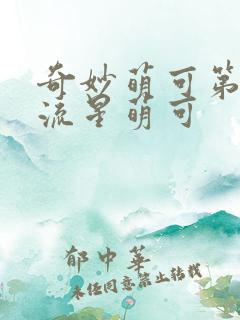 奇妙萌可第
流星萌可
郁中华
未经同意禁止转载